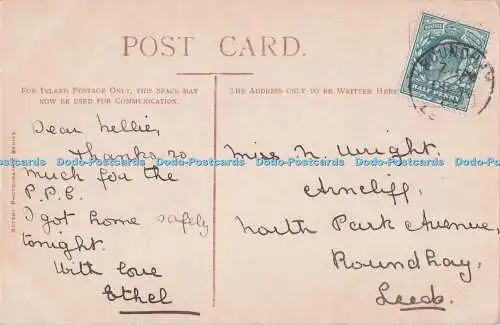 POST CARD.
FOR INLAND POSTAGE ONLY, THIS SPACE MAY
NOW BE USED FOR COMMUNICATION.
THE ADDRESS ONLY TO BE WRITTEN HERE
HALFPENNY
ROUNDHAY
Dear Nellie,
Thanks so
much for the
P.P.C.
I got home safely
tonight.
With love
Ethel
Miss N. Wright.
Arncliff,
North Park Avenue,
Roundhay,
Leeds.
ROTARY PHOTOGRAPHIC SERIES
Dodo-Postcards Dodo-Postcards Dodo-Postcards Dodo-Postcards Dodo-Postcards Dodo-Postcards